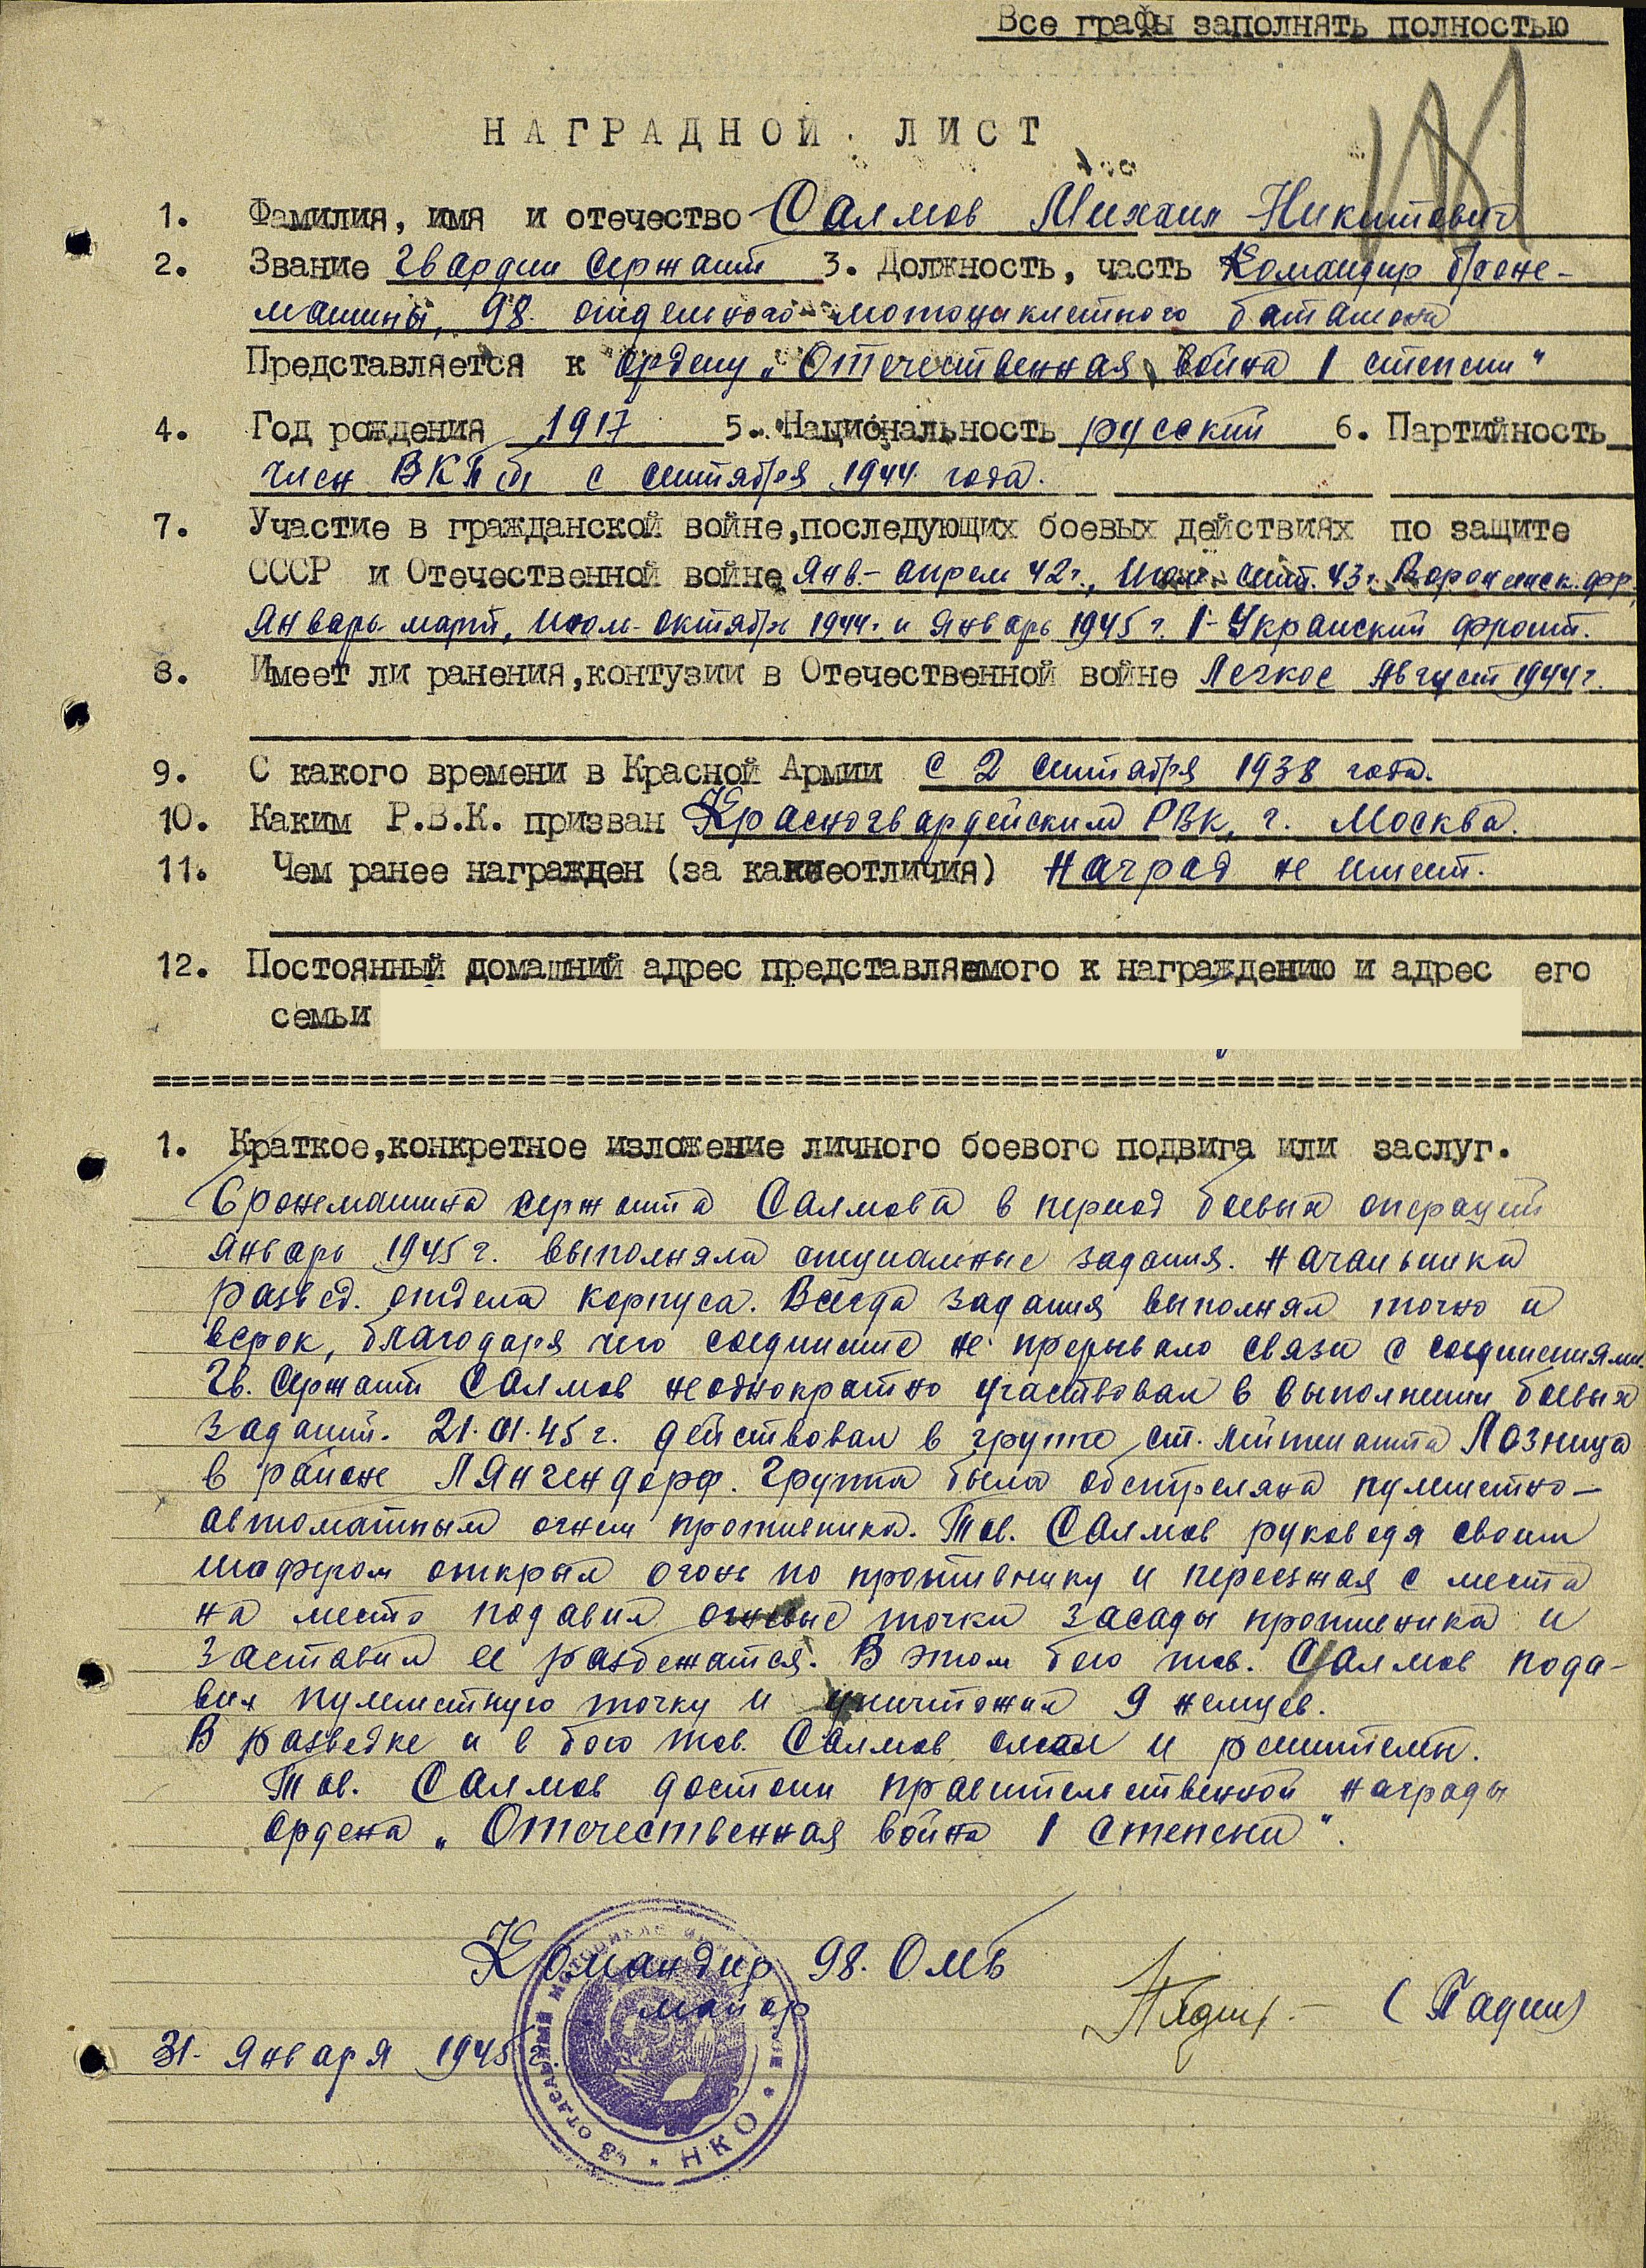 Все графы заполнять полностью
НАГРАДНОЙ ЛИСТ
1. Фамилия, имя и отчество Саямов Михаил Никитович
2. Звание Гвардии сержант 3. Должность, часть Командир броне-
машины, 98. отдельного мотоциклетного баталиона
Представляется к ордену „Отечественная война I степени"
4. Год рождения 1917 5. Национальность русский 6. Партийность
член ВКП(б) с сентября 1944 года.
7. Участие в гражданской войне, последующих боевых действиях по защите
СССР и Отечественной войне Янв.- апрель 42г., Июль- сент. 43г. Воронежск. фр.
Январь- март, Июль- октябрь 1944г. и Январь 1945 г. I- Украиский фронт.
8. Имеет ли ранения, контузии в Отечественной войне Легкое Август 1944г.
9. С какого времени в Красной Армии с 2 сентября 1938 года.
10. Каким Р.В.К. призван Красногвардейским РВК, г. Москва.
11. Чем ранее награжден (за какие отличия) Наград не имеет.
12. Постоянный домашний адрес представляемого к награждению и адрес его
семьи
1. Краткое, конкретное изложение личного боевого подвига или заслуг.
Бронемашина сержанта Саямова в период боевых операций
Январь 1945 г. выполняла специальные задания. Начальника
развед. отдела корпуса. Всегда задания выполнял точно и
всрок, благодаря чего соединение не прерывало связи с соединениями.
Гв. Сержант Саямов неоднократно участвовал в выполнении боевых
заданий. 21.01.45 г. действовал в группе ст. лейтенанта Лозница
в районе Лянгендорф. Группа была обстреляна пулеметно-
автоматным огнем противника. Тов. Саямов руководя своим
шофером открыл огонь по противнику и переезжая с места
на место подавил огневые точки засады противника и
заставил ее разбежатся. В этом бою тов. Саямов пода-
вил пулеметную точку и уничтожил 9 немцев.
В разведке и в бою тов. Саямов смел и решителен.
Тов. Саямов достоин правительственной награды
ордена „Отечественная война I степени".
Командир 98. Омб
майор
(Падин)
31. Января 1945 г.
98 ОТДЕЛЬНЫЙ МОТОЦИКЛ
НКО